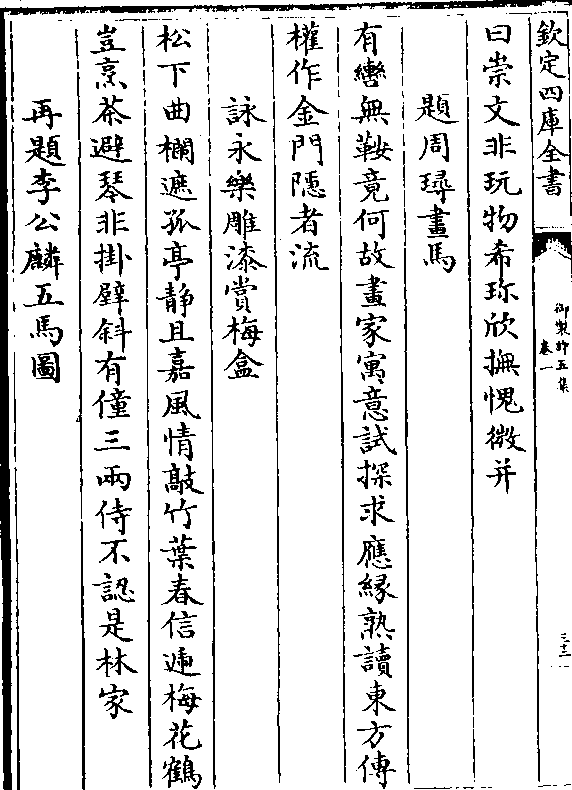 欽定四庫全書
御製詩五集
卷一
三十二
曰崇文非玩物希珎欣撫愧微并
題周璕畫馬
有轡無鞍竟何故畫家寓意試探求應緣熟讀東方傳
權作金門隱者流
詠永樂雕漆賞梅盒
松下曲欄遮孤亭靜且嘉風情敲竹葉春信逓梅花鶴
豈烹茶避琴非掛壁斜有僮三兩侍不認是林家
再題李公麟五馬圖